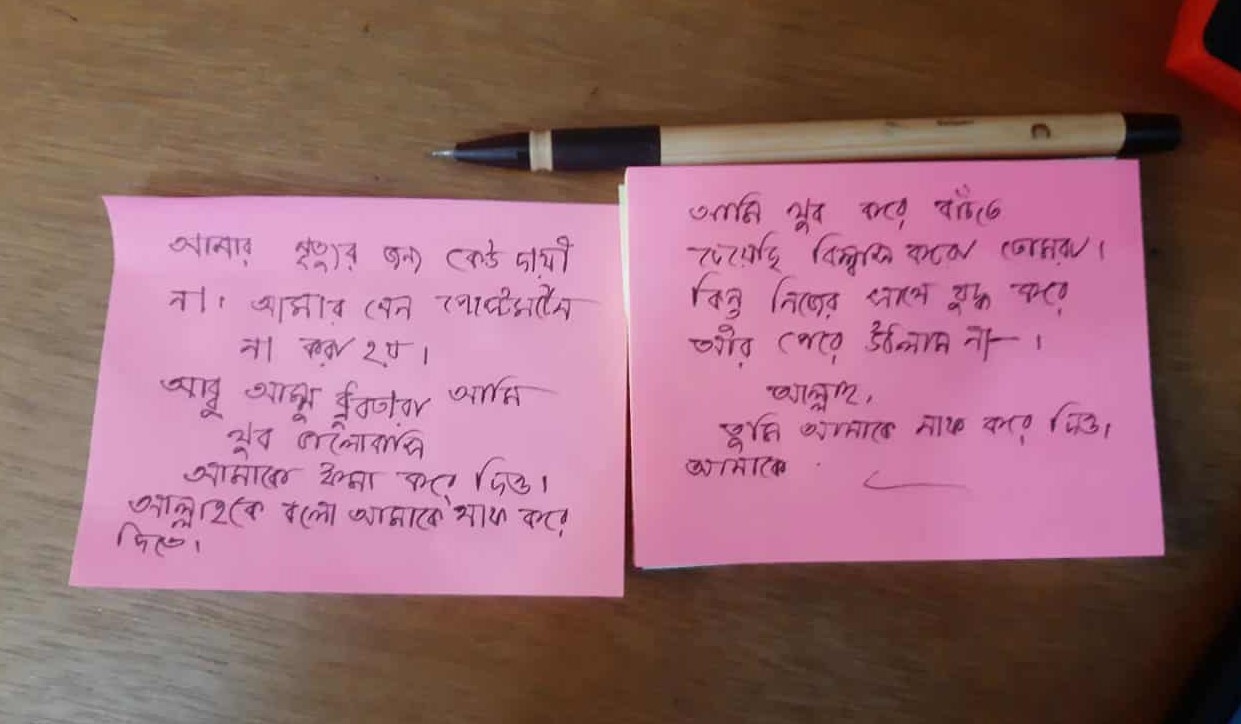 আমার মৃত্যুর জন্য কেউ দায়ী
না। আমার যেন পোস্টমর্টেম
না করা হয়।
আব্বু আম্মু ধ্রুবতারা আমি
খুব ভালোবাসি
আমাকে ক্ষমা করে দিও।
আল্লাহকে বলো আমাকে মাফ করে
দিতে।
আমি খুব করে বাঁচতে
চেয়েছি বিশ্বাস করো তোমরা।
কিন্তু নিজের সাথে যুদ্ধ করে
আর পেরে উঠলাম না।
আল্লাহ,
তুমি আমাকে মাফ করে দিও।
আমাকে